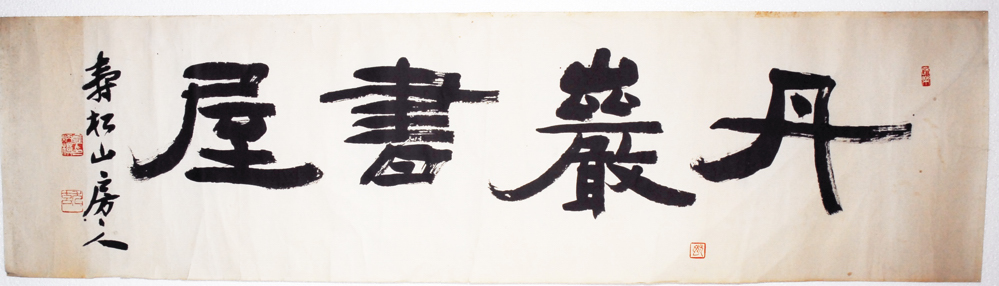 丹巖書屋
壽松山房人